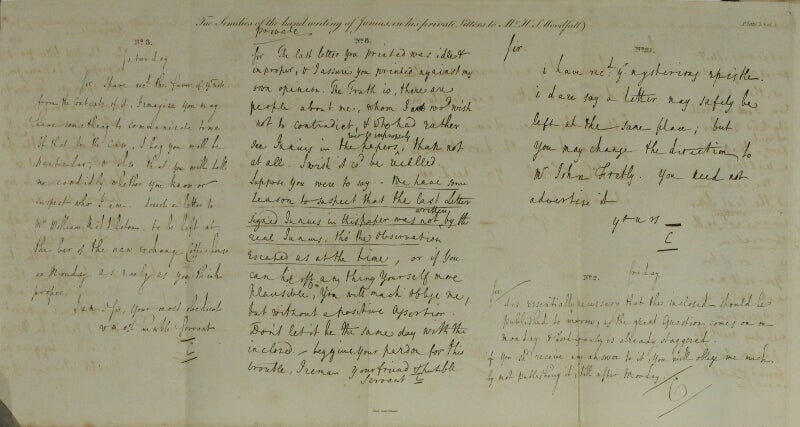 Fac Similies of the hand writing of Junius, in his private Letters to Mr. H. S. Woodfall
No. 3.
Saturday
Sir. I have recd. the favor of yr. note.
from the Contents of it, I imagine you may
have something to communicate to me
if that be the case, I beg you will be
particular; & also that you will tell
me candidly whether you know or
suspect who I am. direct a letter to
Mr. William Middleton. to be left at
the bar of the new exchange Coffee house
on Monday. as early as you think
proper.
I am. Sir. Your most obedient
& most humble Servant
C
No. 8.
private.
Sir The last letter you printed was idle &
improper, & I assure you printed against my
own opinion. The Truth is, there are
people about me, whom I wd. wish
not to contradict, & who had rather
see Junius in the papers, ever so improperly than not
at all. I wish it cd. be recalled.
Suppose you were to say - We have some
reason to suspect that the last Letter
signed Junius in this paper was not written by the
real Junius, tho' the Observation
escaped us at the time, or if you
can hit off any thing Yourself more
plausible, You will much oblige me,
but without a positive assertion.
Don't let it be the same day with the
inclosed. - begging Your pardon for this
trouble, I remain your friend & humble
Servant C
Sir.
i have recd. yr. mysterious epistle.
i dare say a letter may safely be
left at the same place; but
you may change the direction to
Mr. John Fretly. you need not
advertise it
yours
C
No. 2.
friday
Sir
it is essentially necessary that the inclosed should be
published to morrow, as the great Question comes on on
monday, & Lord Granby is already staggered.
if you shd. receive any answer to it, You will oblige me much
by not publishing it, till after Monday.
C